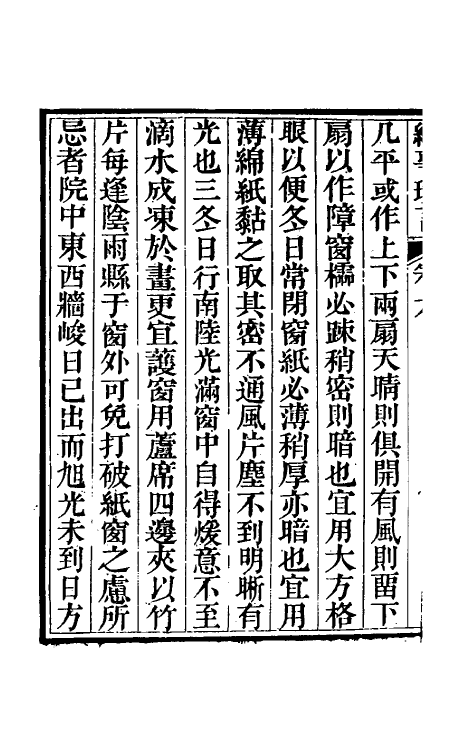 几平或作上下兩扇天晴則俱開有風則畱下
扇以作障窗櫺必疎稍密則暗也宜用大方格
眼以便冬日常閉窗紙必薄稍厚亦暗也宜用
薄綿紙黏之取其密不通風片塵不到明晰有
光也三冬日行南陸光滿窗中自得煖意不至
滴水成凍於畫更宜護窗用蘆席四邊夾以竹
片每逢陰雨縣于窗外可免打破紙窗之慮所
忌者院中東西牆峻日已出而旭光未到日方